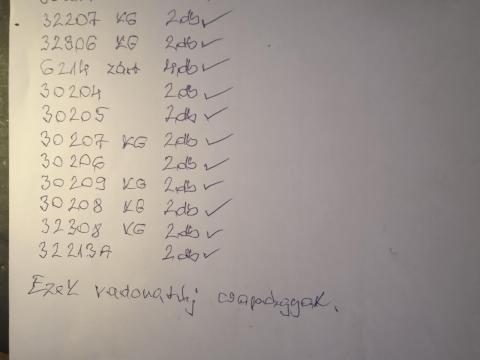 32207 KG 2db ✓
32306 KG 2db ✓
6214 zárt 4db ✓
30204 2db ✓
30205 2db ✓
30207 KG 2db ✓
30206 2db ✓
30209 KG 2db ✓
30208 KG 2db ✓
32308 KG 2db ✓
32213A 2db ✓
Ezek vadonatúj csapágyak.